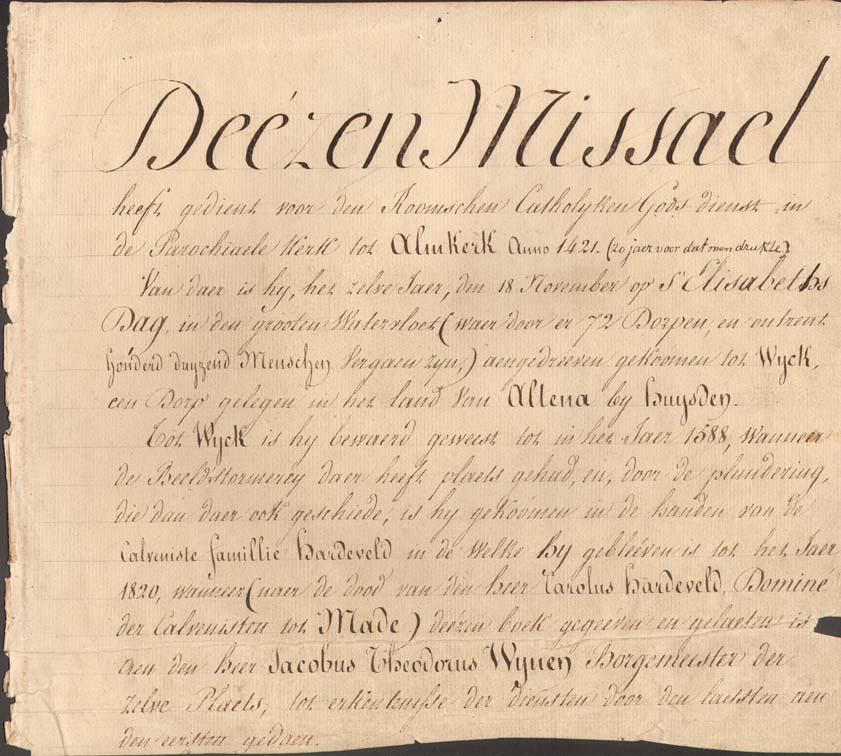 Deézen Missael
heeft gedient voor den Roomschen Catholyken Gods dienst, in
de Parochiaele Kerk tot Almkerk Anno 1421. (20 jaer voor dat men drukte)
Van daer is hy, het zelve Jaer, den 18 November op St Elisabeths
Dag, in den grooten Watervloet (waer door er 72 Dorpen, en ontrent
honderd duyzend Menschen vergaen zyn,) aengedreeven gekoomen tot Wyck,
een Dorp gelegen in het land van Altena by huysden.
Tot Wyck is hy bewaerd geweest tot in het Jaer 1588, wanneer
de Beeldstormerey daer heeft plaets gehad, en, door de plundering,
die dan daer ook geschiede, is hy gekoómen in de handen van de
Calveniste famillie Hardeveld in de welke hy gebleéven is tot het Jaer
1820, wanneer (naer de dood van den heer Carolus Hardeveld, Dominé
der Calvenisten tot Made) deézen boek gegeéven en gelaeten is
aen den heer Jacobus Theodorus Wynen Borgemeester der
zelve Plaets; tot erkentnisse der diensten door den laetsten aen
den eersten gedaen.